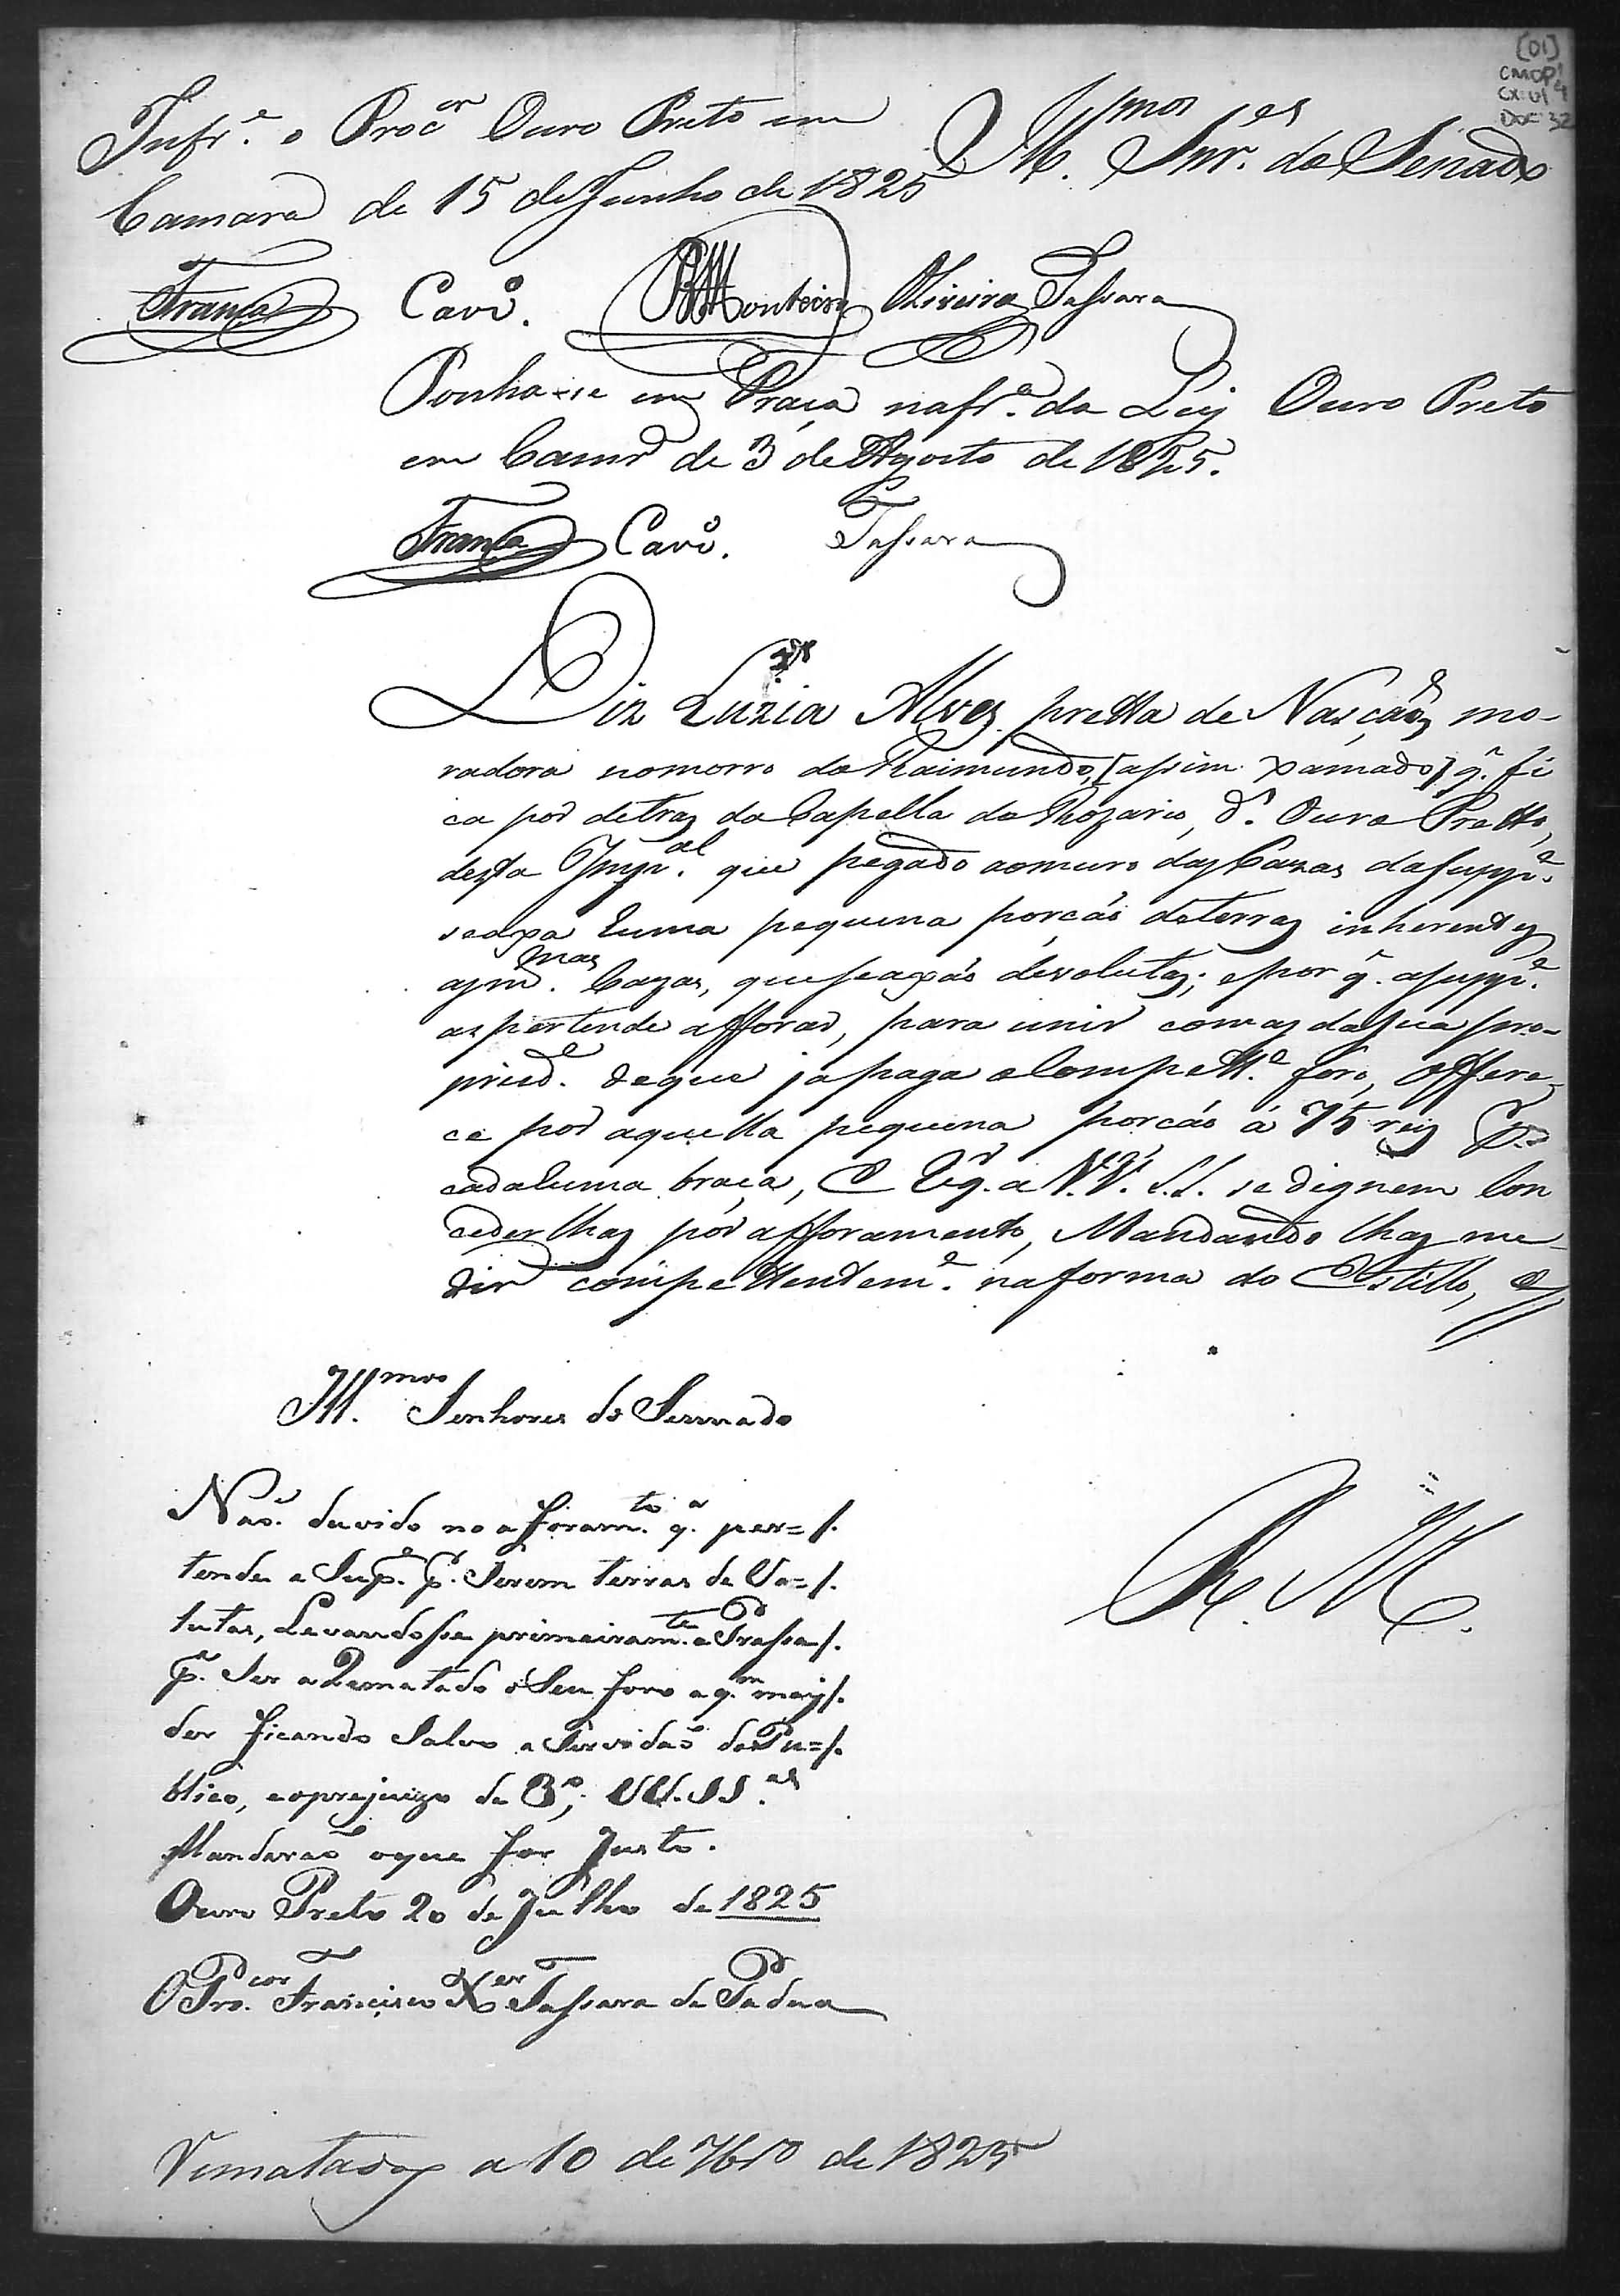 [01]
CMOP
CX 01
DOC 32
Infr.e o Procor Ouro Preto em
Camara de 15 de Junho de 1825
Illmos Snr.es do Senado
França Carv.o Monteiro Oliveira Tassara
Ponha-se em Praça na fr.a da Ley Ouro Preto
em Camr.a de 3 de Agosto de 1825.
França Carv.o Tassara
Diz Luzia Alvez pretta de Nasção, mo-
radora no morro do Raimundo, [assim xamado] q. fi
ca por detraz da Capella do Rozario, d. Ouro Pretto,
desta Imp.al que pegado ao muro das Cazas da Supp.e
se axa huma pequena porcáo de terras inherentes
as m.mas Cazas, que se axáo devolutas; e por q. a Supp.e
as pertende afforar, para unir com as da sua pro-
pried.e de que ja paga o Compett.e foro, offere-
ce por aquella pequena porcáo á 75 reis P.r
cada huma braça, e
a V.V. S.S. se dignem Con
ceder lhas por afforamento, Mandando lhas me-
dir compettentem.e na forma do Estillo, e
Ill.mos Senhores do Sennado
Naõ. duvido no aforam.to q. per=/.
tende a Sup.e p.r Serem terras de Va=/.
lutas, Levandosse primeiram.te a Prassa/.
p.a Ser aRematado o Seu foro a q.m mays/.
der ficando Salvo a Servidaõ do Pu=/.
blico, e oprejuizo de 3.o; VV.SS.as
Mandaraõ oque for Justo.
Ouro Preto 20 de Julho de 1825
O Pro.cor Francisco X.er Tassara de Padua
R. M.
Rematada a 10 de 7bro de 1825